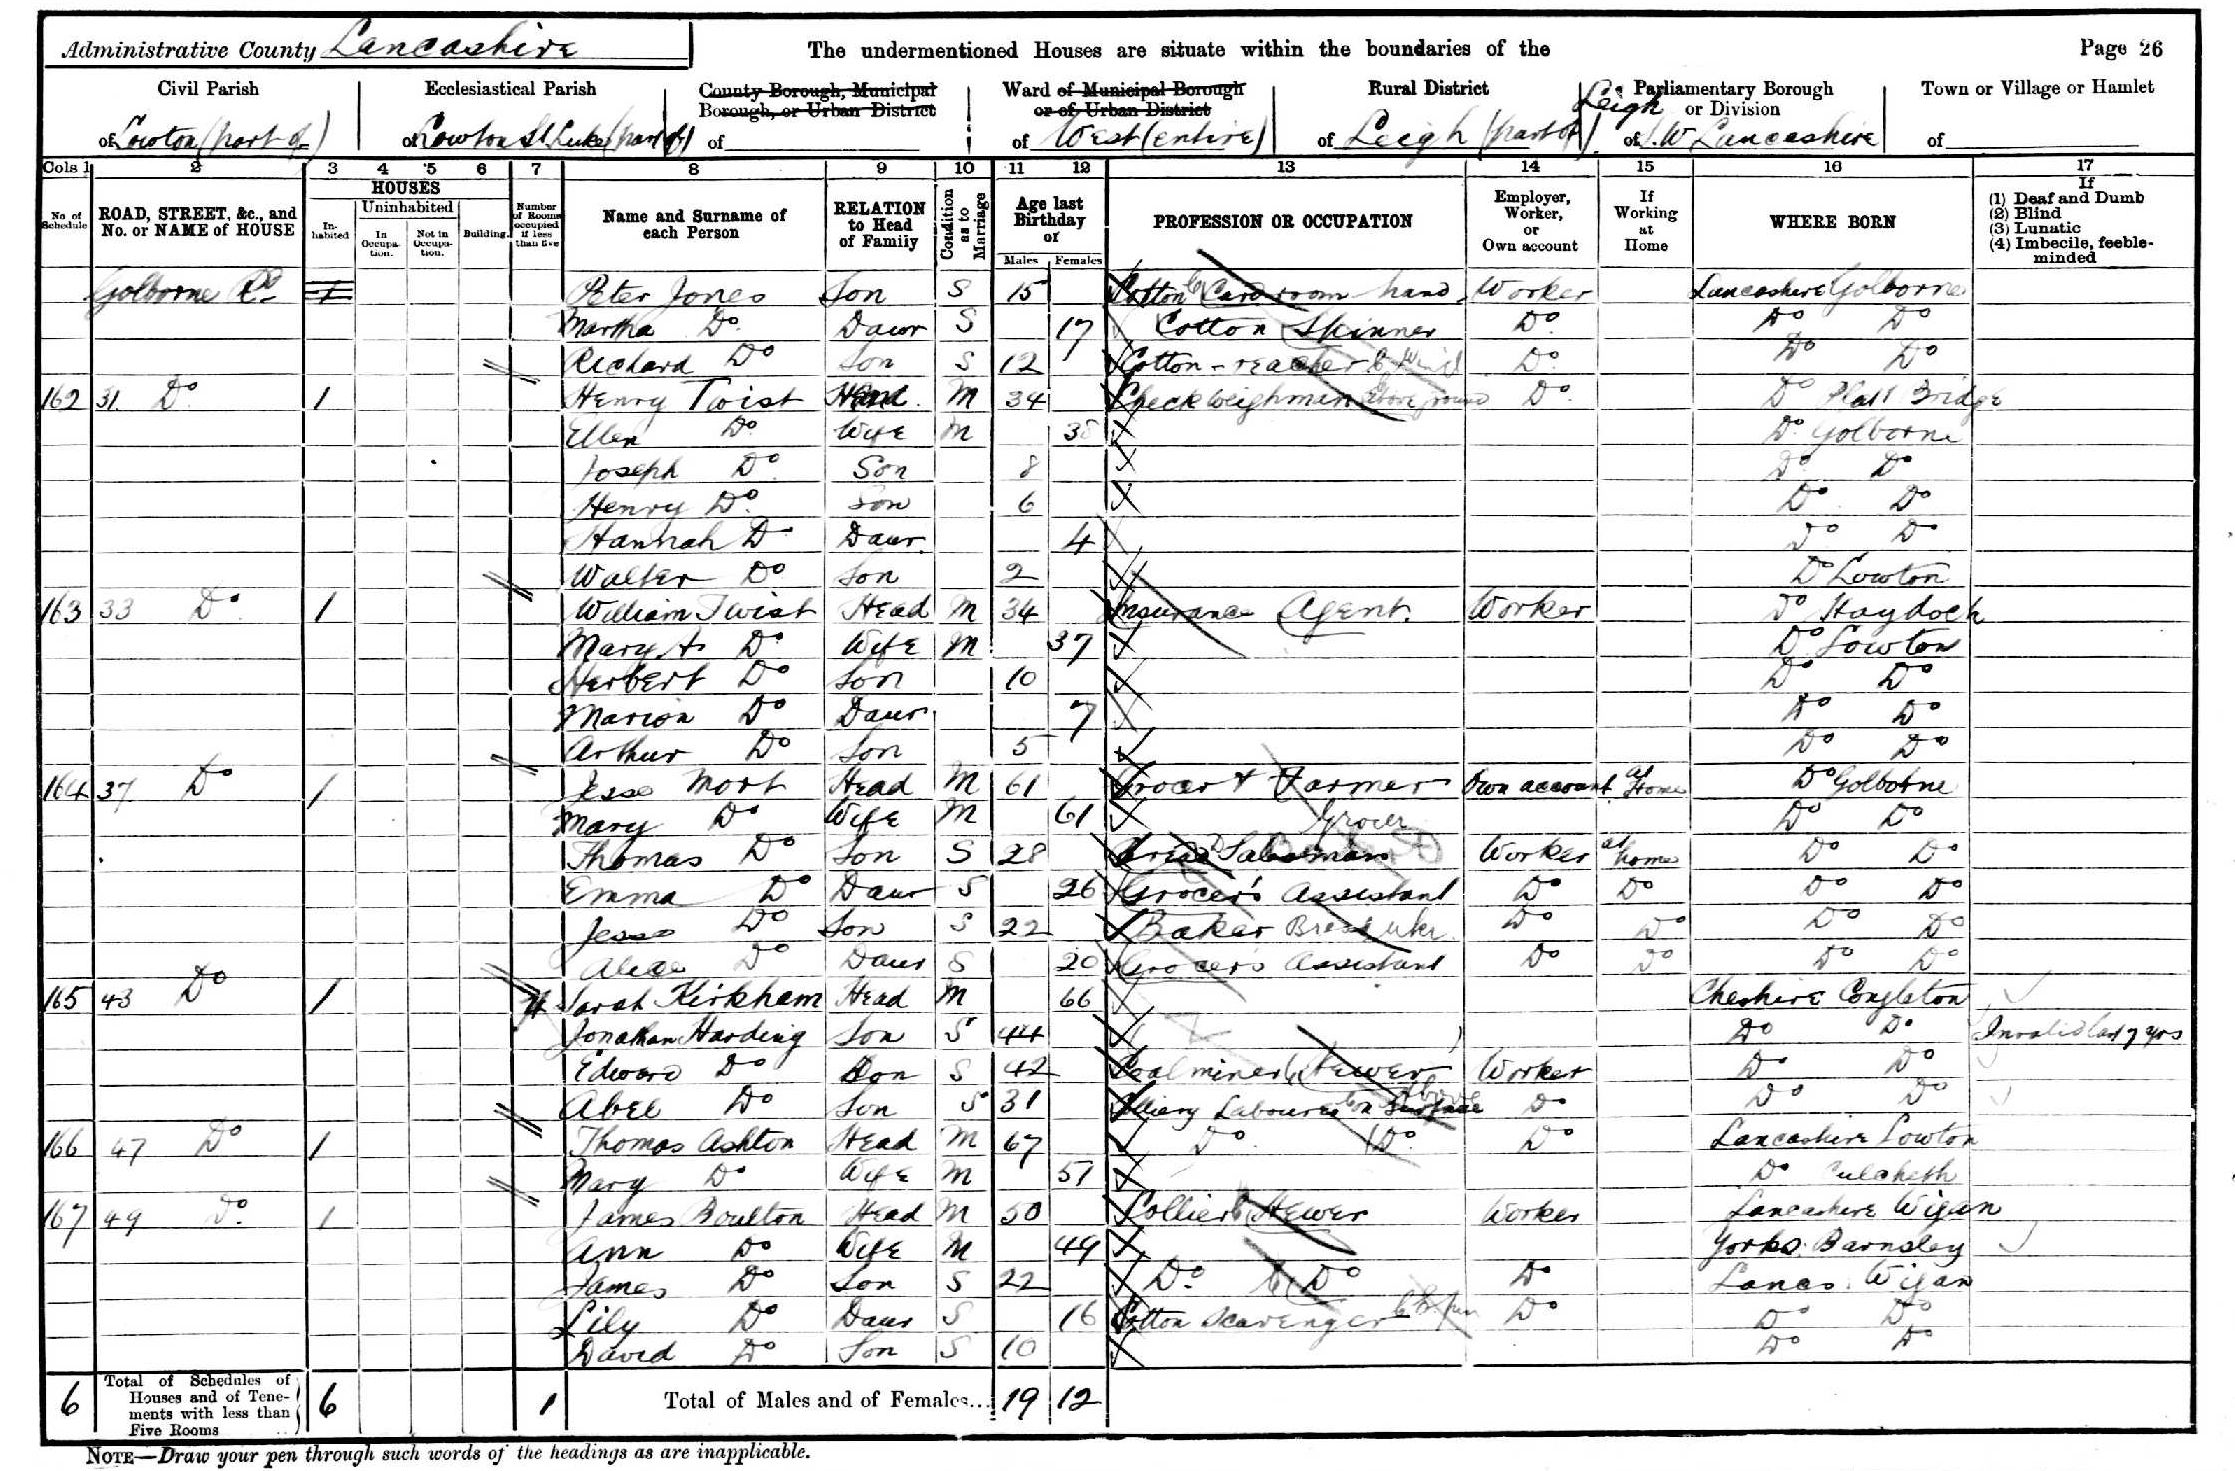 Administrative County Lancashire The undermentioned Houses are situate within the boundaries of the Page 26
Civil Parish Ecclesiastical Parish County Borough, Municipal Borough, or Urban District Ward of Municipal Borough or of Urban District Rural District Parliamentary Borough or Division Town or Village or Hamlet
of Lowton (part of) of Lowton St Lukes (part of) of of West (entire) of Leigh (part of) Leigh of S.W. Lancashire of
Cols 1 2 3 4 5 6 7 8 9 10 11 12 13 14 15 16 17
No. of Schedule ROAD, STREET, &c., and No. or NAME of HOUSE HOUSES Inhabited Uninhabited In Occupation. Not in Occupation. Building. Number of Rooms occupied if less than five Name and Surname of each Person RELATION to Head of Family Condition as to Marriage Age last Birthday of Males Females PROFESSION OR OCCUPATION Employer, Worker, or Own account If Working at Home WHERE BORN If (1) Deaf and Dumb (2) Blind (3) Lunatic (4) Imbecile, feeble-minded
Golborne Rd 1 Peter Jones Son S 15 Cotton Card room hand Worker Lancashire Golborne
Martha Do Daur S 17 Cotton Skinner Do Do Do
Richard Do Son S 12 Cotton - reacher Do Do Do
162 31 Do 1 Henry Twist Head M 34 Checkweighman above ground Do Do Platt Bridge
Ellen Do Wife M 38 Do Golborne
Joseph Do Son 8 Do Do
Henry Do Son 6 Do Do
Hannah Do Daur 4 Do Do
Walter Do Son 2 Do Lowton
163 33 Do 1 William Twist Head M 34 Insurance Agent. Worker Do Haydock
Mary A Do Wife M 37 Do Lowton
Herbert Do Son 10 Do Do
Marion Do Daur 7 Do Do
Arthur Do Son 5 Do Do
164 37 Do 1 Jesse Mort Head M 61 Grocer & Farmer Own account at Home Do Golborne
Mary Do Wife M 61 Do Do
Thomas Do Son S 28 Grocer Bread Salesman Worker at home Do Do
Emma Do Daur S 26 Grocer's Assistant Do Do Do Do
Jesse Do Son S 22 Baker Bread Do Do Do Do
Alice Do Daur S 20 Grocer's Assistant Do Do Do Do
165 43 Do 1 4 Sarah Kirkham Head M 66 Cheshire Congleton
Jonathan Harding Son S 44 Do Do Invalid last 7 yrs
Edward Do Son S 42 Coal miner Hewer Worker Do Do
Abel Do Son S 31 Colliery Labourer on Surface above Do Do Do
166 47 Do 1 Thomas Ashton Head M 67 Do Do Do Lancashire Lowton
Mary Do Wife M 51 Do Culcheth
167 49 Do 1 James Boulton Head M 50 Collier Hewer Worker Lancashire Wigan
Ann Do Wife M 49 Yorks. Barnsley
James Do Son S 22 Do Do Do Lancs. Wigan
Lily Do Daur S 16 Cotton Scavenger Do Do Do
David Do Son S 10 Do Do
6 Total of Schedules of Houses and of Tenements with less than Five Rooms 6 1 Total of Males and of Females... 19 12
NOTE—Draw your pen through such words of the headings as are inapplicable.